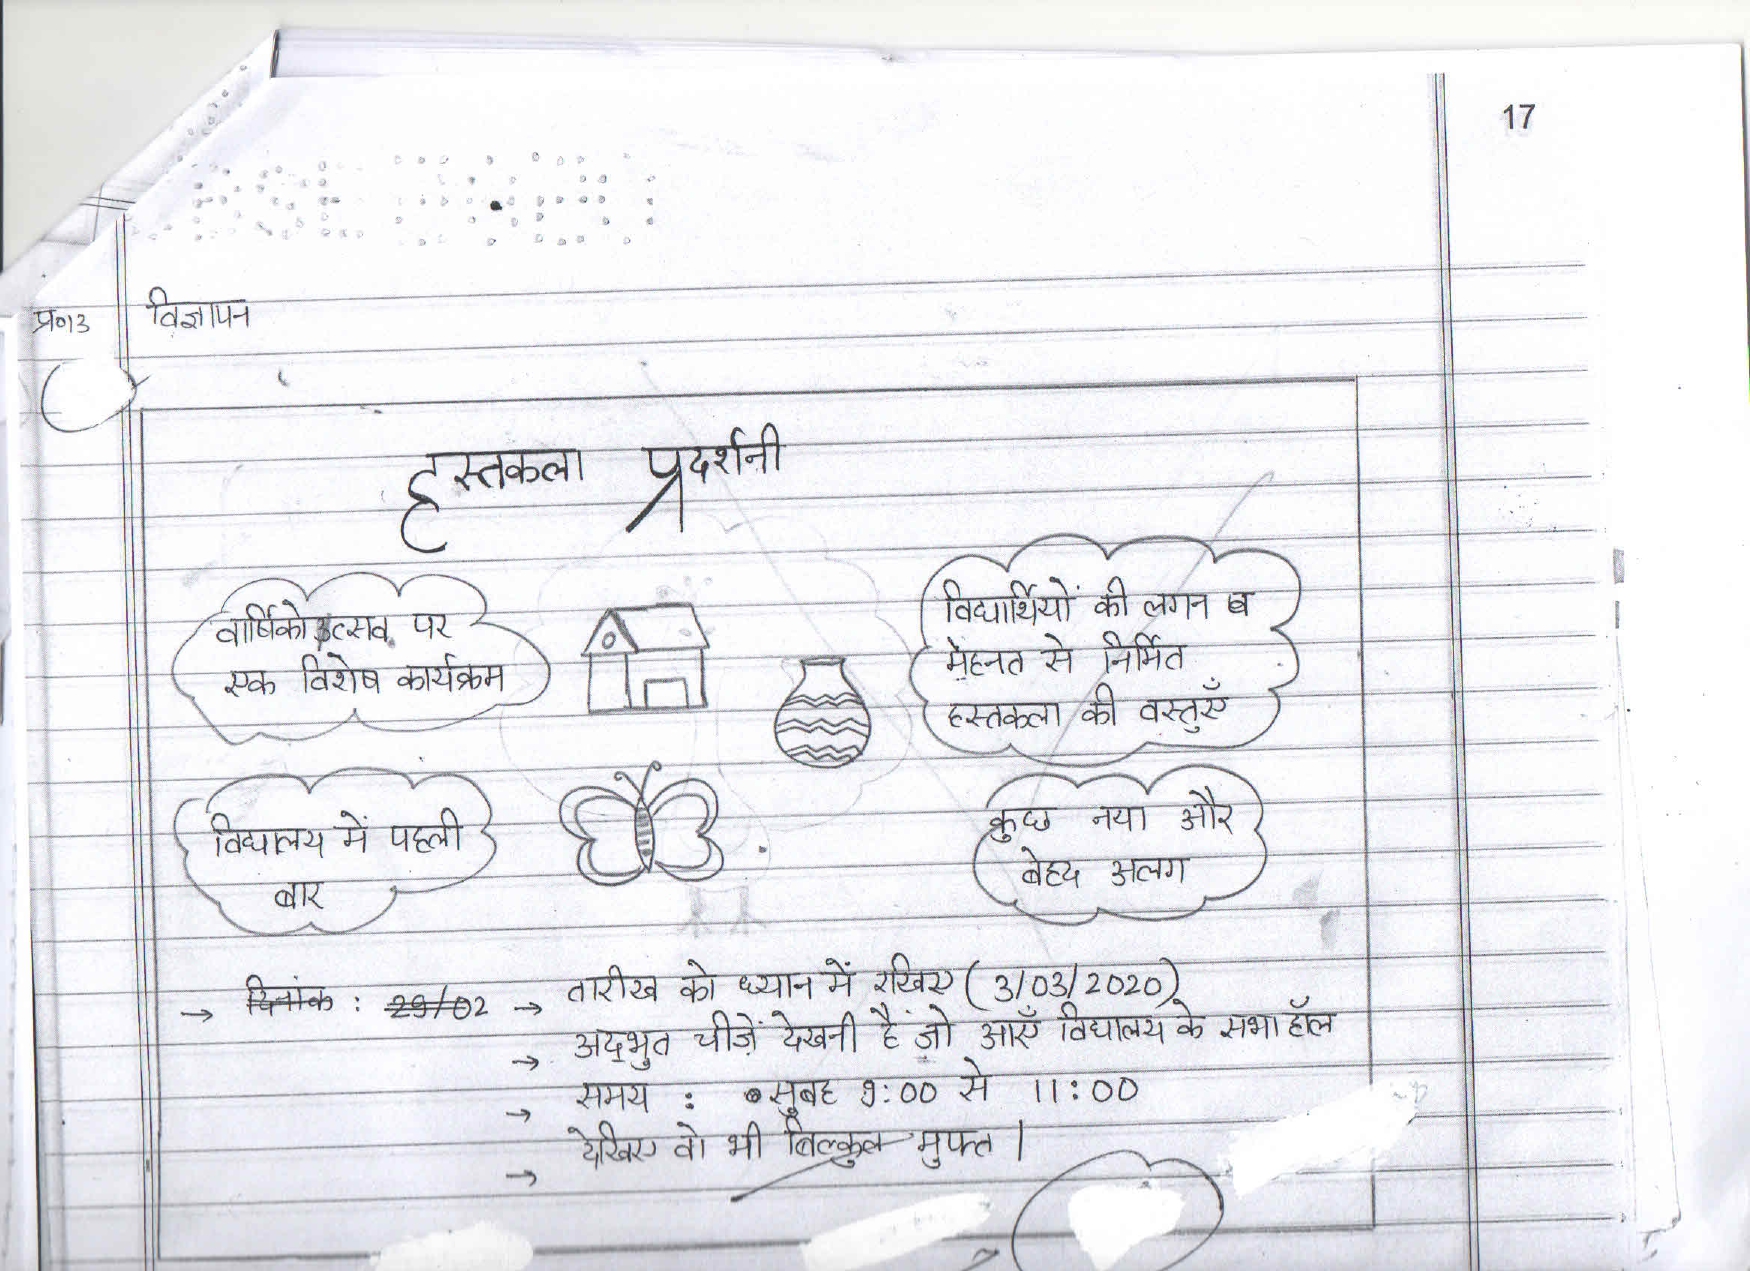 17
प्र०13 विज्ञापन
हस्तकला प्रदर्शनी
वार्षिकोउत्सव पर
एक विशेष कार्यक्रम
विद्यार्थियों की लगन व
मेहनत से निर्मित
हस्तकला की वस्तुएँ
विद्यालय में पहली
बार
कुछ नया और
बेहद अलग
→ दिनांक : 29/02 → तारीख को ध्यान में रखिए (3/03/2020)
→ अद्भुत चीज़ें देखनी हैं जो आएँ विद्यालय के सभा हॉल
→ समय : सुबह 9:00 से 11:00
→ देखिए वो भी बिल्कुल मुफ्त।